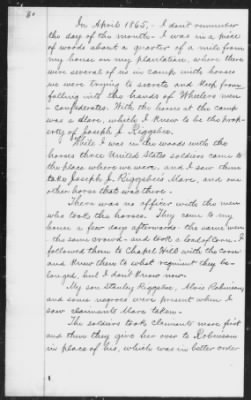 In April 1865, - I don't remember
the day of the month - I was in a piece
of woods about a quarter of a mile from
my house on my plantation, where there
were several of us in camp with horses
we were trying to secrete and keep from
falling into the hands of Wheelers men
- confederates. With the horses at the camp
was a Mare, which I knew to be the prop-
erty of Joseph J. Riggsbee.
While I was in the woods with the
horses three United States soldiers came to
the place where we were, and I saw them
take Joseph J. Riggsbee's Mare, and one
other horse that was there.
There was no officer with the men
who took the horses. They came to my
house a few days afterwards - the same men -
the same crowd - and took a load of corn. I
followed them to Chapel Hill with the corn
and knew then to what regiment they be-
longed, but I don't know now.
My son Stanley Riggsbee, Alvis Robinson,
and some negroes were present when I
saw claimants Mare taken.
The soldiers took claimants mare first
and then they give her over to Robinson
in place of his, which was in better order